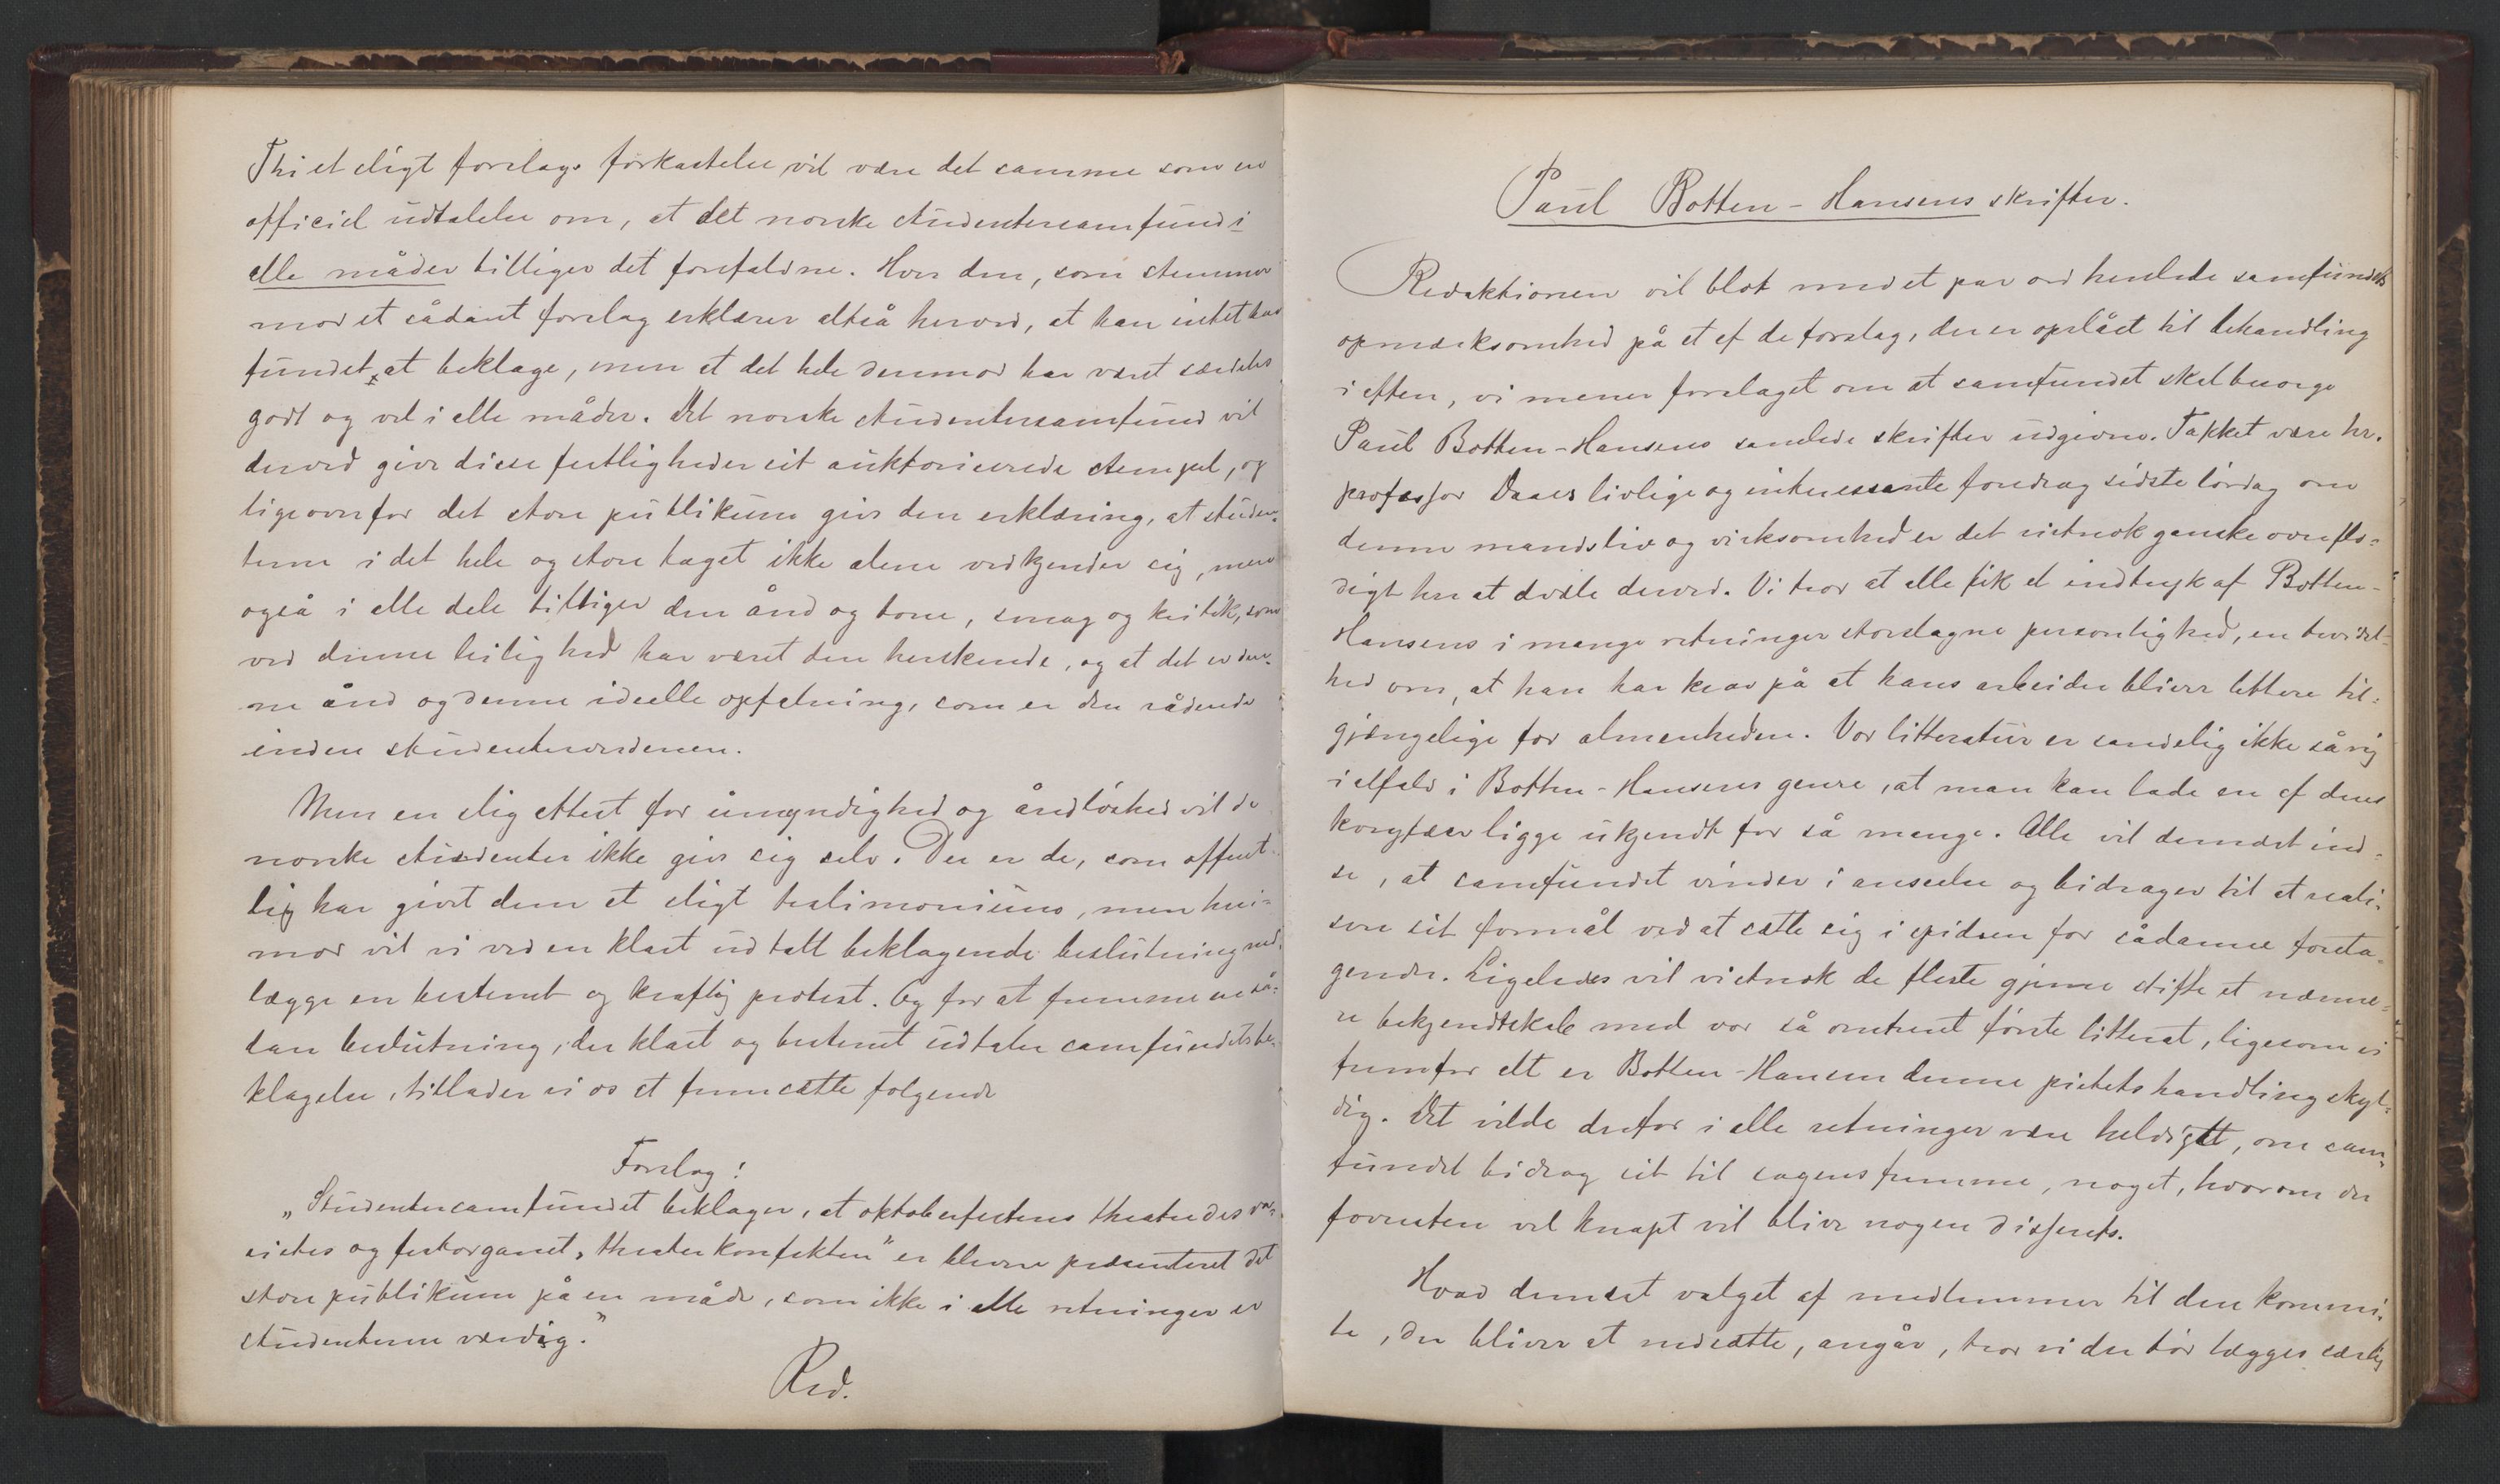 Thi et sligt forslags forkastelse vil være det samme som en
officiel udtalelse om, at det norske studentersamfund i
alle måder billiger det forefaldne. Hver den, som stemmer
mod et sådant forslag erklærer altså herved, at han intet har
fundet at beklage, men at det hele derimod har været særdeles
godt og vel i alle måder. Det norske studentersamfund vil
derved give disse festligheder sit auktoriserede stempel, og
ligeoverfor det store publikum give den erklæring, at studen-
terne i det hele og store taget ikke alene vedkjender sig, men
også i alle dele billiger den ånd og tone, smag og kritik, som
ved denne leilighed har været den herskende, og at det er den-
ne ånd og denne ideelle opfatning, som er den rådende
inden studenterverdenen.
Men en slig attest for umyndighed og åndløshed vil de
norske studenter ikke give sig selv. Der er de, som offent-
lig har givet dem et sligt testimonium, men heri-
mod vil vi ved en klart udtalt beklagende beslutning ned-
lægge en bestemt og kraftig protest. Og for at fremme en så-
dan beslutning, der klart og bestemt udtaler samfundets be-
klagelse, tillader vi os at fremsætte følgende
Forslag:
„Studentersamfundet beklager, at oktoberfestens theatre des va-
rietes og festorganet „theaterkonfekten" er bleven præsenteret det
store publikum på en måde, som ikke i alle retninger er
studenterne værdig."
Red.
Paul Botten-Hansens skrifter.
Redaktionen vil blot med et par ord henlede samfundets
opmærksomhed på et af de forslag, der er opslået til behandling
i aften, vi mener forslaget om at samfundet skal besørge
Paul Botten-Hansens samlede skrifter udgivne. Takket være hr.
professor Daaes livlige og interessante foredrag sidste lørdag om
denne mands liv og virksomhed er det vistnok ganske overflø-
digt her at dvæle derved. Vi tror at alle fik et indtryk af Botten-
Hansens i mange retninger storslagne personlighed, en bevidst-
hed om, at han har krav på at hans arbeider bliver lettere til-
gjængelige for almenheden. Vor litteratur er sandelig ikke så rig
ialfald i Botten-Hansens genre, at man kan lade en af dens
koryfæer ligge ukjendt for så mange. Alle vil dernæst ind-
se, at samfundet vinder i anseelse og bidrager til at reali-
sere sit formål ved at sætte sig i spidsen for sådanne foreta-
gender. Ligeledes vil vistnok de fleste gjerne stifte et nærme-
re bekjendtskab med vor så omtrent første litterat, ligesom vi
fremfor alt er Botten-Hansen denne pietetshandling skyl-
dig. Det vilde derfor i alle retninger være heldigst, om sam-
fundet bidrog sit til sagens fremme, noget, hvorom der
forresten vel knapt vil blive nogen dissents.
Hvad dernæst valget af medlemmer til den kommi-
te, der bliver at nedsætte, angår, tror vi der bør lægges særlig